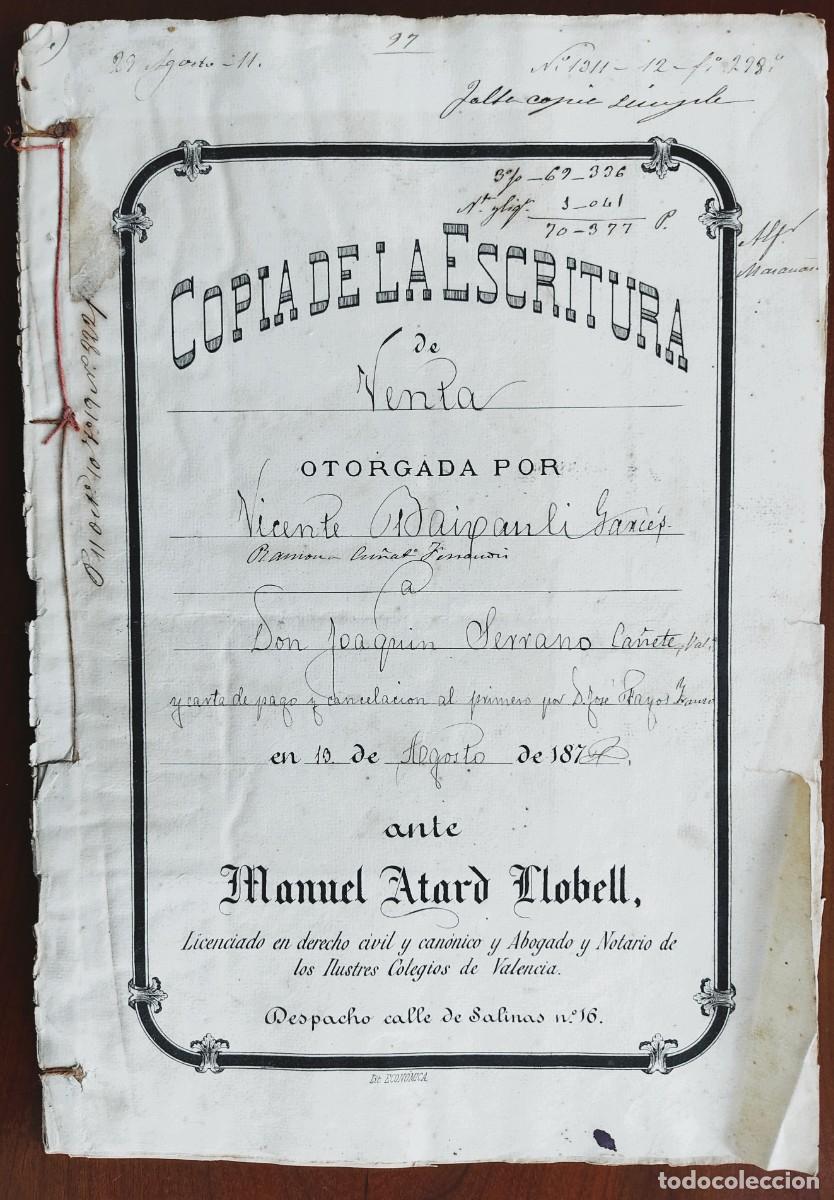 97
29 Agosto - 11.
Nº 1311 - 12 - fº 298º
Falta copia simple
3% - 69 - 336
1 - 041
70 - 377 P.
COPIA DE LA ESCRITURA
de
Venta
OTORGADA POR
Vicente Baixauli Garcés
Ramona Cuñat Ferrandis
a
Don Joaquin Serrano Cañete, Val.ª
y carta de pago y cancelacion al primero por D. José Fayos
en 19 de Agosto de 187
ante
Manuel Atard Llobell,
Licenciado en derecho civil y canónico y Abogado y Notario de
los Ilustres Colegios de Valencia.
Despacho calle de Salinas nº 16.
Lit. ECONOMICA
todocoleccion